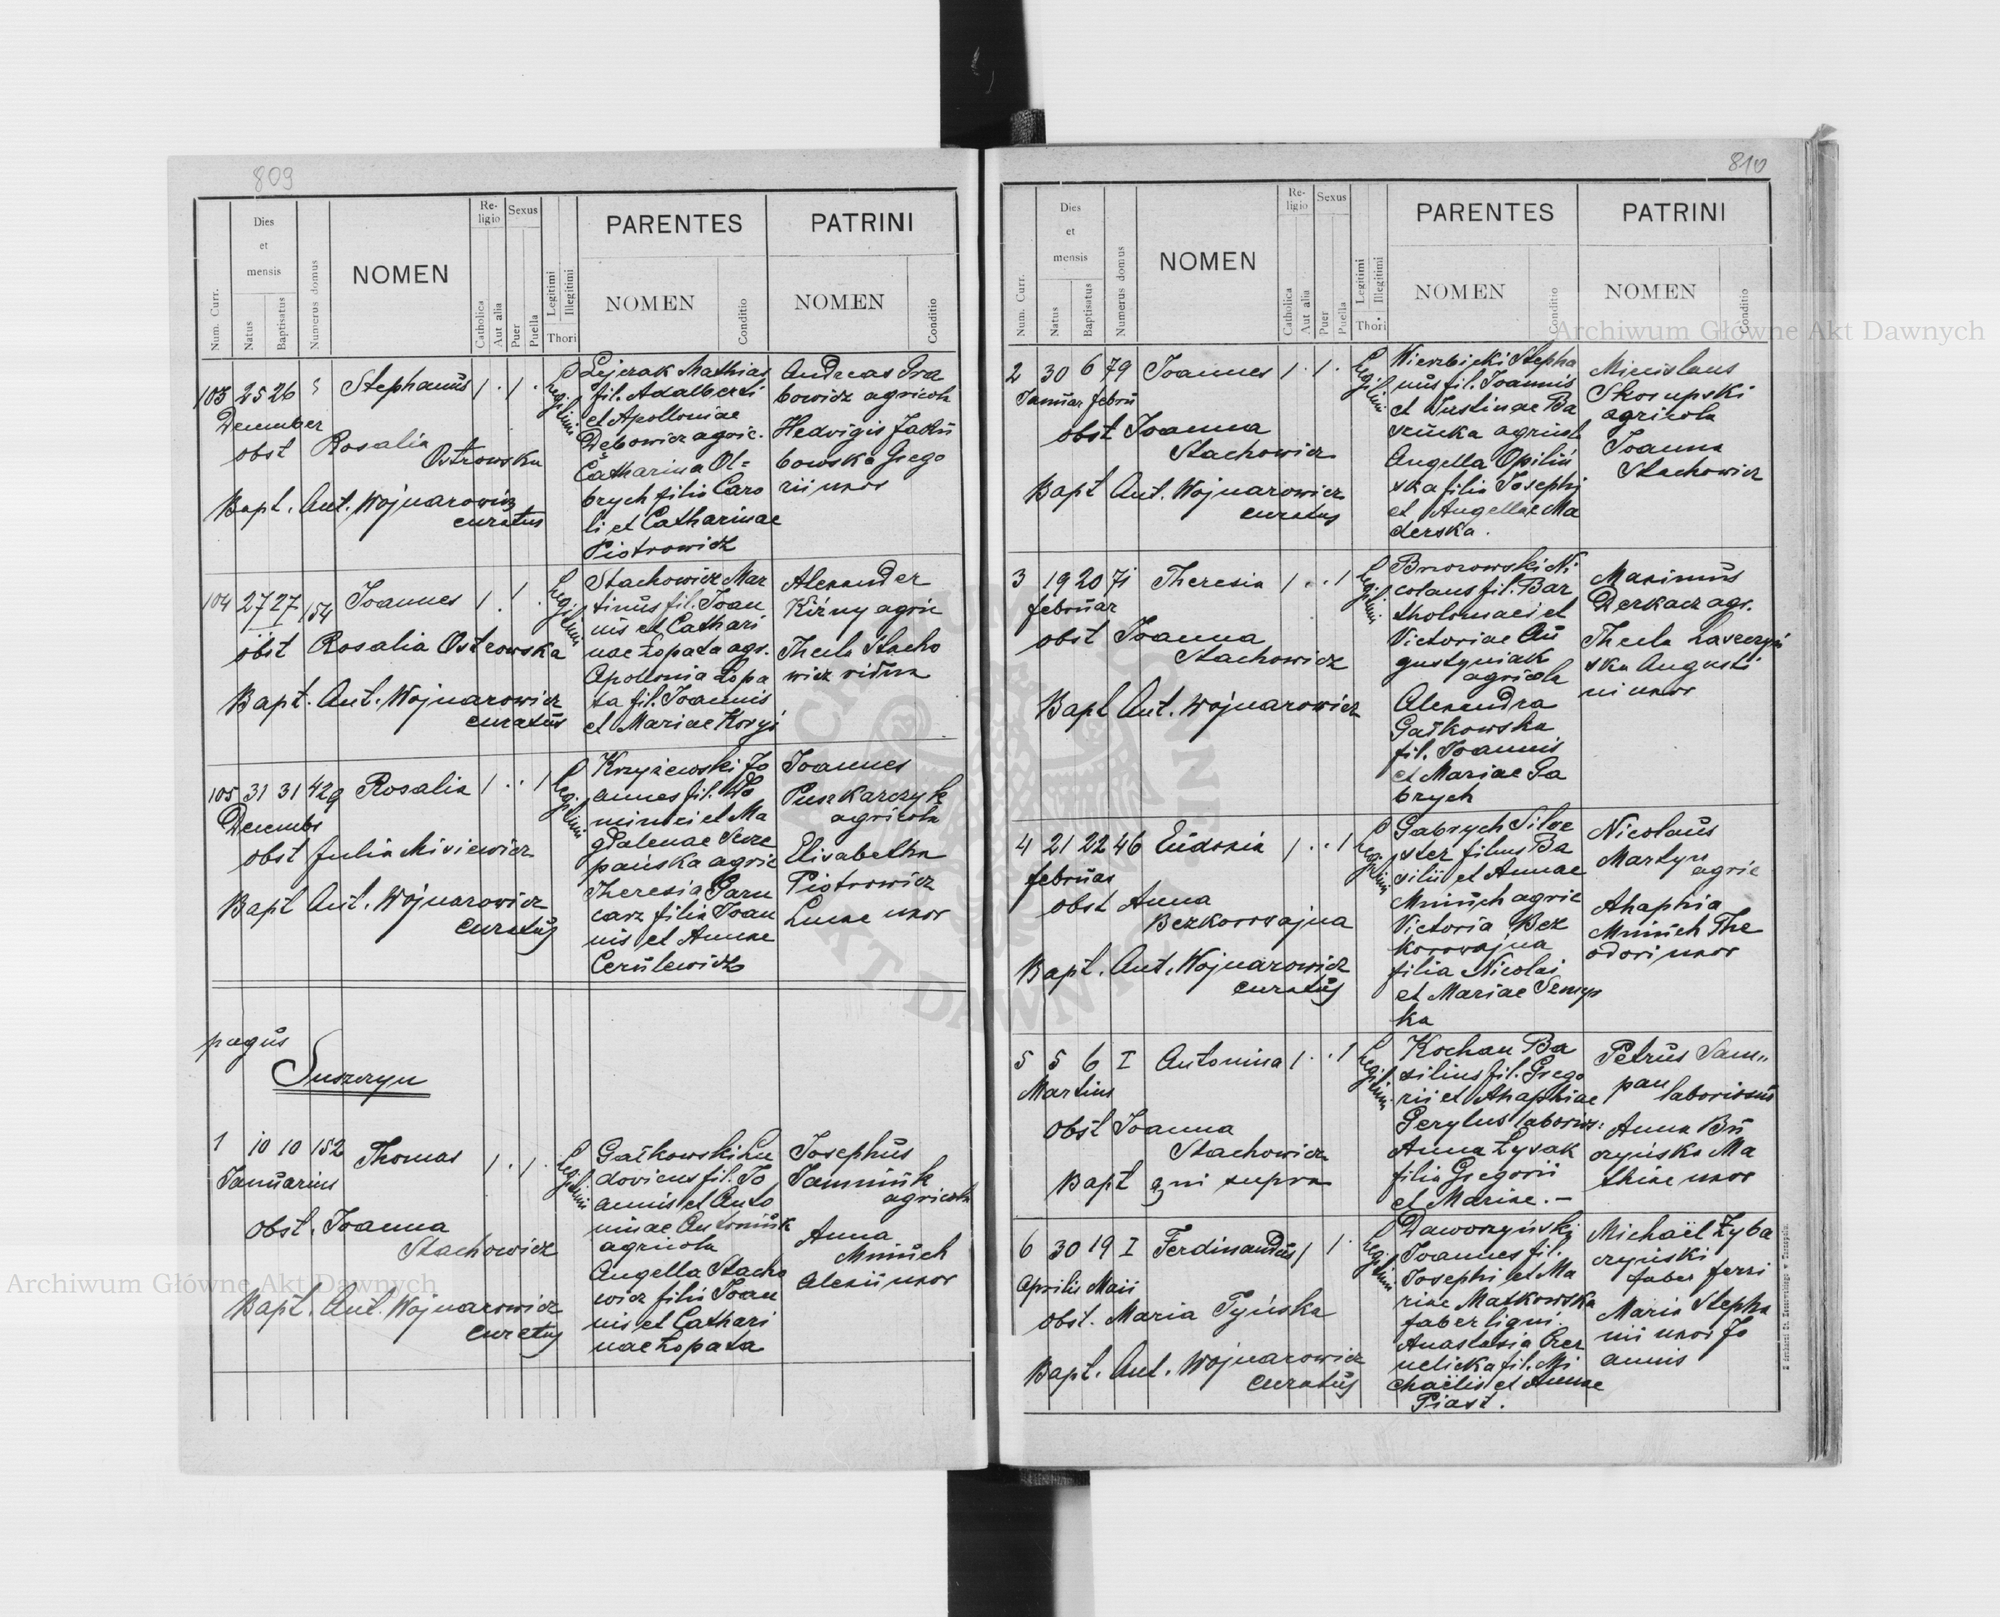 809
Num. Curr.
Dies
et
mensis
Natus
Baptisatus
Numerus domus
NOMEN
Re-
ligio
Catholica
Aut alia
Sexus
Puer
Puella
Legitimi
Illegitimi
Thori
PARENTES
NOMEN
Conditio
PATRINI
NOMEN
Conditio
103 25 26 Stephanus 1 . 1 .
December
obst Rosalia
Ostrowska
Bapt. Ant. Wojnarowicz
curatus
Legitimi
Mathias
fil. Adalberti
et Apolloniae
Dębowicz agric.
Catharina Ol=
brych filia Caro
li et Catharinae
Piotrowicz
Andreas
bowicz agricola
Hedvigis
bowska Grego
rii uxor
104 27 27 154 Joannes 1 . 1 .
obst Rosalia Ostrowska
Bapt. Ant. Wojnarowicz
curatus
Legitimi
Stachowicz Mar
tinus fil. Joan
nis et Cathari
nae Łopata agr.
Apolonia Łopa
ta fil. Joannis
et Mariae
Alexander
Kirny agric
Thecla Stacho
wicz vidua
105 31 31 429 Rosalia 1 . . 1
Decembr
obst Julia
Bapt Ant. Wojnarowicz
curatus
Legitimi
Krzyżewski Jo
annes fil. Do
minici et Ma
gdalenae Szcze
pańska agric
Theresia Garn
carz filia Joan
nis et Annae
Cerulewicz
Joannes
Puszkarczyk
agricola
Elisabetha
Piotrowicz
Lucae uxor
pagus
Suszczyn
1 10 10 152 Thomas 1 . 1 .
Januarius
obst. Joanna
Stachowicz
Bapt. Ant. Wojnarowicz
curatus
Legitimi
Gałkowski Lu
dovicus fil. Jo
annis et Anto
ninae Antoniuk
agricola
Angella Stacho
wicz filia Joan
nis et Cathari
nae Łopata
Josephus
agricola
Anna
Mniuch
Alexii uxor
810
Num. Curr.
Dies
et
mensis
Natus
Baptisatus
Numerus domus
NOMEN
Re-
ligio
Catholica
Aut alia
Sexus
Puer
Puella
Legitimi
Illegitimi
Thori
PARENTES
NOMEN
Conditio
PATRINI
NOMEN
Conditio
2 30 6 79 Joannes 1 . 1 .
Januar februar
obst Joanna
Stachowicz
Bapt Ant. Wojnarowicz
curatus
Legitimi
Wierzbicki Stepha
nus fil. Joannis
et Justinae Ba
agricola
Angella Opiliń
ska filia Josephi
et Angellae Ma
derska.
Micislaus
Skorupski
agricola
Joanna
Stachowicz
3 19 20 71 Theresia 1 . . 1
februar
obst Joanna
Stachowicz
Bapt Ant. Wojnarowicz
Legitimi
Brzozowski Ni
colaus fil. Bar
tholomaei et
Victoriae Au
gustyniak
agricola
Alexandra
Gałkowska
fil. Joannis
et Mariae Ga
brych
Maximus
Derkacz agr.
Thecla
ska Augusti
ni uxor
4 21 22 46 Eudoxia 1 . . 1
februar
obst Anna
Bezkorowajna
Bapt. Ant. Wojnarowicz
curatus
Legitimi
Gabrych Silve
ster filius Ba
silii et Annae
Mniuch agric
Victoria Bez
korowajna
filia Nicolai
et Mariae
ka
Nicolaus
Martyn
agric
Ahaphia
Mniuch The
odori uxor
5 5 6 I Antonina 1 . . 1
Martius
obst Joanna
Stachowicz
Bapt qui supra
Legitimi
Kochan Ba
silius fil. Grego
rii et Ahaphiae
Gerylus laborios:
Anna Łysak
filia Gregorii
et Mariae. –
Petrus
pan
laboriosus
Anna Bu
czyńska Ma
thiae uxor
6 30 19 I Ferdinandus 1 1 .
Aprilis Maii
obst. Maria Tyńska
Bapt. Ant. Wojnarowicz
curatus
Legitimi
Daworzyński
Joannes fil.
Josephi et Ma
riae Małkowska
faber lign.
Anastasia Czer
nelicka fil. Mi
chaëlis et Annae
Piast.
Michaël Zyba
czyński
faber ferri
Maria Stepha
nii uxor Jo
annis
Archiwum Główne Akt Dawnych
Archiwum Główne Akt Dawnych